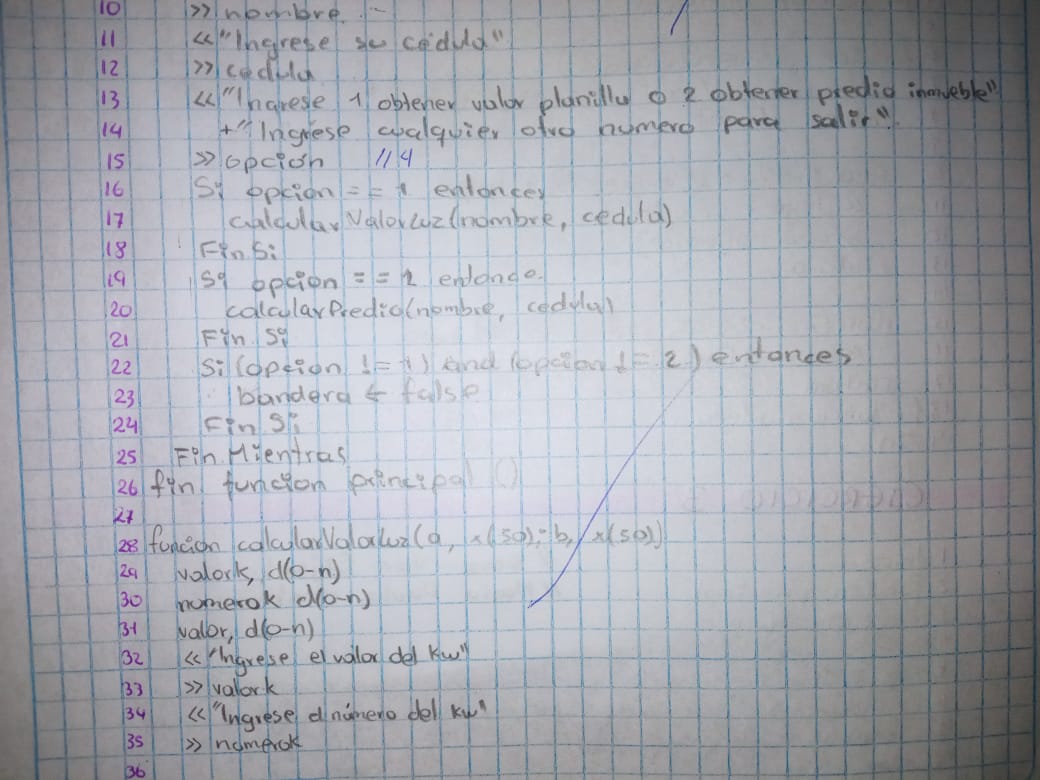 10 >> nombre.
11 << "Ingrese su cédula"
12 >> cedula
13 << "Ingrese 1 obtener valor planilla o 2 obtener predio inmueble"
14 + "Ingrese cualquier otro numero para salir".
15 >> opcion //4
16 Si opcion == 1 entonces
17 calcularValorLuz(nombre, cedula)
18 Fin Si
19 Si opcion == 2 entonce.
20 calcularPredio(nombre, cedula)
21 Fin Si
22 Si (opcion != 1) and (opcion != 2) entonces
23 bandera ← false
24 Fin Si
25 Fin Mientras
26 fin funcion principal ()
27
28 funcion calcularValorLuz(a, x(50); b, x(50))
29 valork, d(0-n)
30 numerok d(0-n)
31 valor, d(0-n)
32 << "Ingrese el valor del Kw"
33 >> valork
34 << "Ingrese el número del kw"
35 >> numerok
36